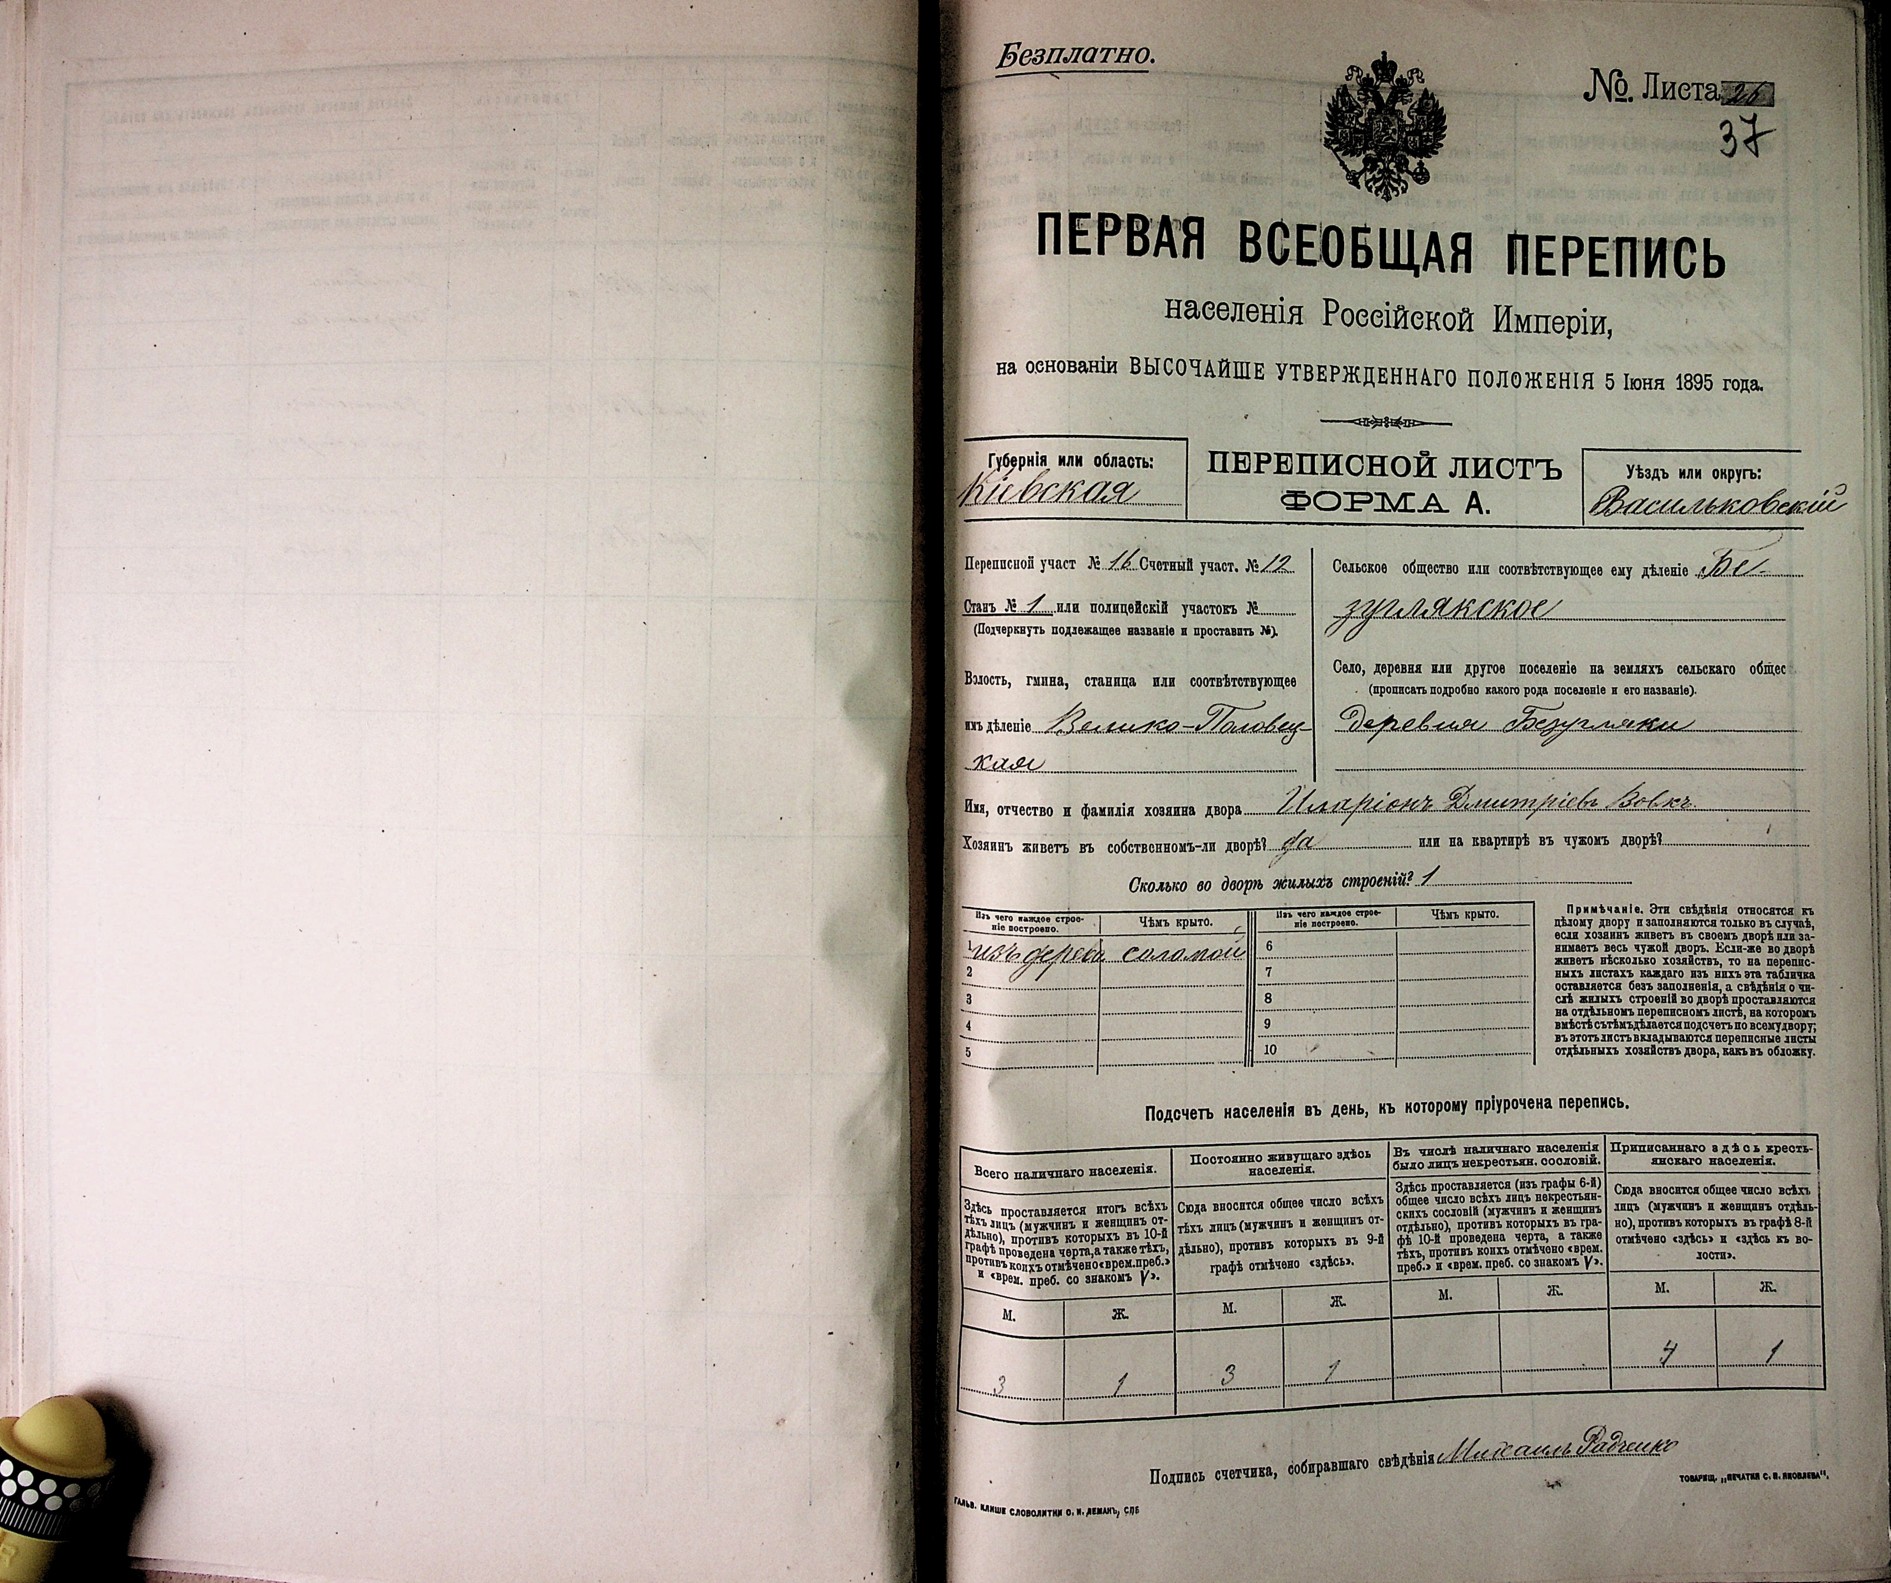 Безплатно.
№. Листа 26
37
ПЕРВАЯ ВСЕОБЩАЯ ПЕРЕПИСЬ
населенія Россійской Имперіи,
на основаніи ВЫСОЧАЙШЕ УТВЕРЖДЕННАГО ПОЛОЖЕНІЯ 5 Іюня 1895 года.
Губернія или область:
Кіевская
ПЕРЕПИСНОЙ ЛИСТЪ
ФОРМА А.
Уѣздъ или округъ:
Васильковскій
Переписной участ № 16 Счетный участ. № 12
Станъ № 1 или полицейскій участокъ №
(Подчеркнуть подлежащее названіе и проставить №).
Волость, гмина, станица или соотвѣтствующее
имъ дѣленіе Велико-Половец-
кая
Сельское общество или соотвѣтствующее ему дѣленіе Бе
зуглякское
Село, деревня или другое поселеніе на земляхъ сельскаго общес
(прописать подробно какого рода поселеніе и его названіе).
деревня Безугляки
Имя, отчество и фамилія хозяина двора Иларіонъ Дмитріевъ Вовкъ
Хозяинъ живетъ въ собственномъ-ли дворѣ? да или на квартирѣ въ чужомъ дворѣ?
Сколько во дворѣ жилыхъ строеній? 1
Изъ чего каждое строе-
ніе построено.
Чѣмъ крыто.
Изъ чего каждое строе-
ніе построено.
Чѣмъ крыто.
1 изъ дерева соломой 6
2 7
3 8
4 9
5 10
Примѣчаніе. Эти свѣдѣнія относятся къ
цѣлому двору и заполняются только въ случаѣ,
если хозяинъ живетъ въ своемъ дворѣ или за-
нимаетъ весь чужой дворъ. Если-же во дворѣ
живетъ нѣсколько хозяйствъ, то на перепис-
ныхъ листахъ каждаго изъ нихъ эта табличка
оставляется безъ заполненія, а свѣдѣнія о чи-
слѣ жилыхъ строеній во дворѣ проставляются
на отдѣльномъ переписномъ листѣ, на которомъ
вмѣстѣ съ тѣмъ дѣлается подсчетъ по всему двору;
въ этотъ листъ вкладываются переписные листы
отдѣльныхъ хозяйствъ двора, какъ въ обложку.
Подсчетъ населенія въ день, къ которому пріурочена перепись.
Всего наличнаго населенія.
Здѣсь проставляется итогъ всѣхъ
тѣхъ лицъ (мужчинъ и женщинъ от-
дѣльно), противъ которыхъ въ 10-й
графѣ проведена черта, а также тѣхъ,
противъ коихъ отмѣчено «врем. преб.»
и «врем. преб. со знакомъ V».
Постоянно живущаго здѣсь
населенія.
Сюда вносится общее число всѣхъ
тѣхъ лицъ (мужчинъ и женщинъ от-
дѣльно), противъ которыхъ въ 9-й
графѣ отмѣчено «здѣсь».
Въ числѣ наличнаго населенія
было лицъ некрестьян. сословій.
Здѣсь проставляется (изъ графы 6-й)
общее число всѣхъ лицъ некрестьян-
скихъ сословій (мужчинъ и женщинъ
отдѣльно), противъ которыхъ въ гра-
фѣ 10-й проведена черта, а также
тѣхъ, противъ коихъ отмѣчено «врем.
преб.» и «врем. преб. со знакомъ V».
Приписаннаго здѣсь кресть-
янскаго населенія.
Сюда вносится общее число всѣхъ
лицъ (мужчинъ и женщинъ отдѣль-
но), противъ которыхъ въ графѣ 8-й
отмѣчено «здѣсь» и «здѣсь къ во-
лости».
М. Ж. М. Ж. М. Ж. М. Ж.
3 1 3 1 4 1
Подпись счетчика, собиравшаго свѣдѣнія Михаилъ Радченко
ГАЛЬВ. КЛИШЕ СЛОВОЛИТНИ О. И. ЛЕМАНЪ, СПБ
ТОВАРИЩ. „ПЕЧАТНЯ С. П. ЯКОВЛЕВА“.